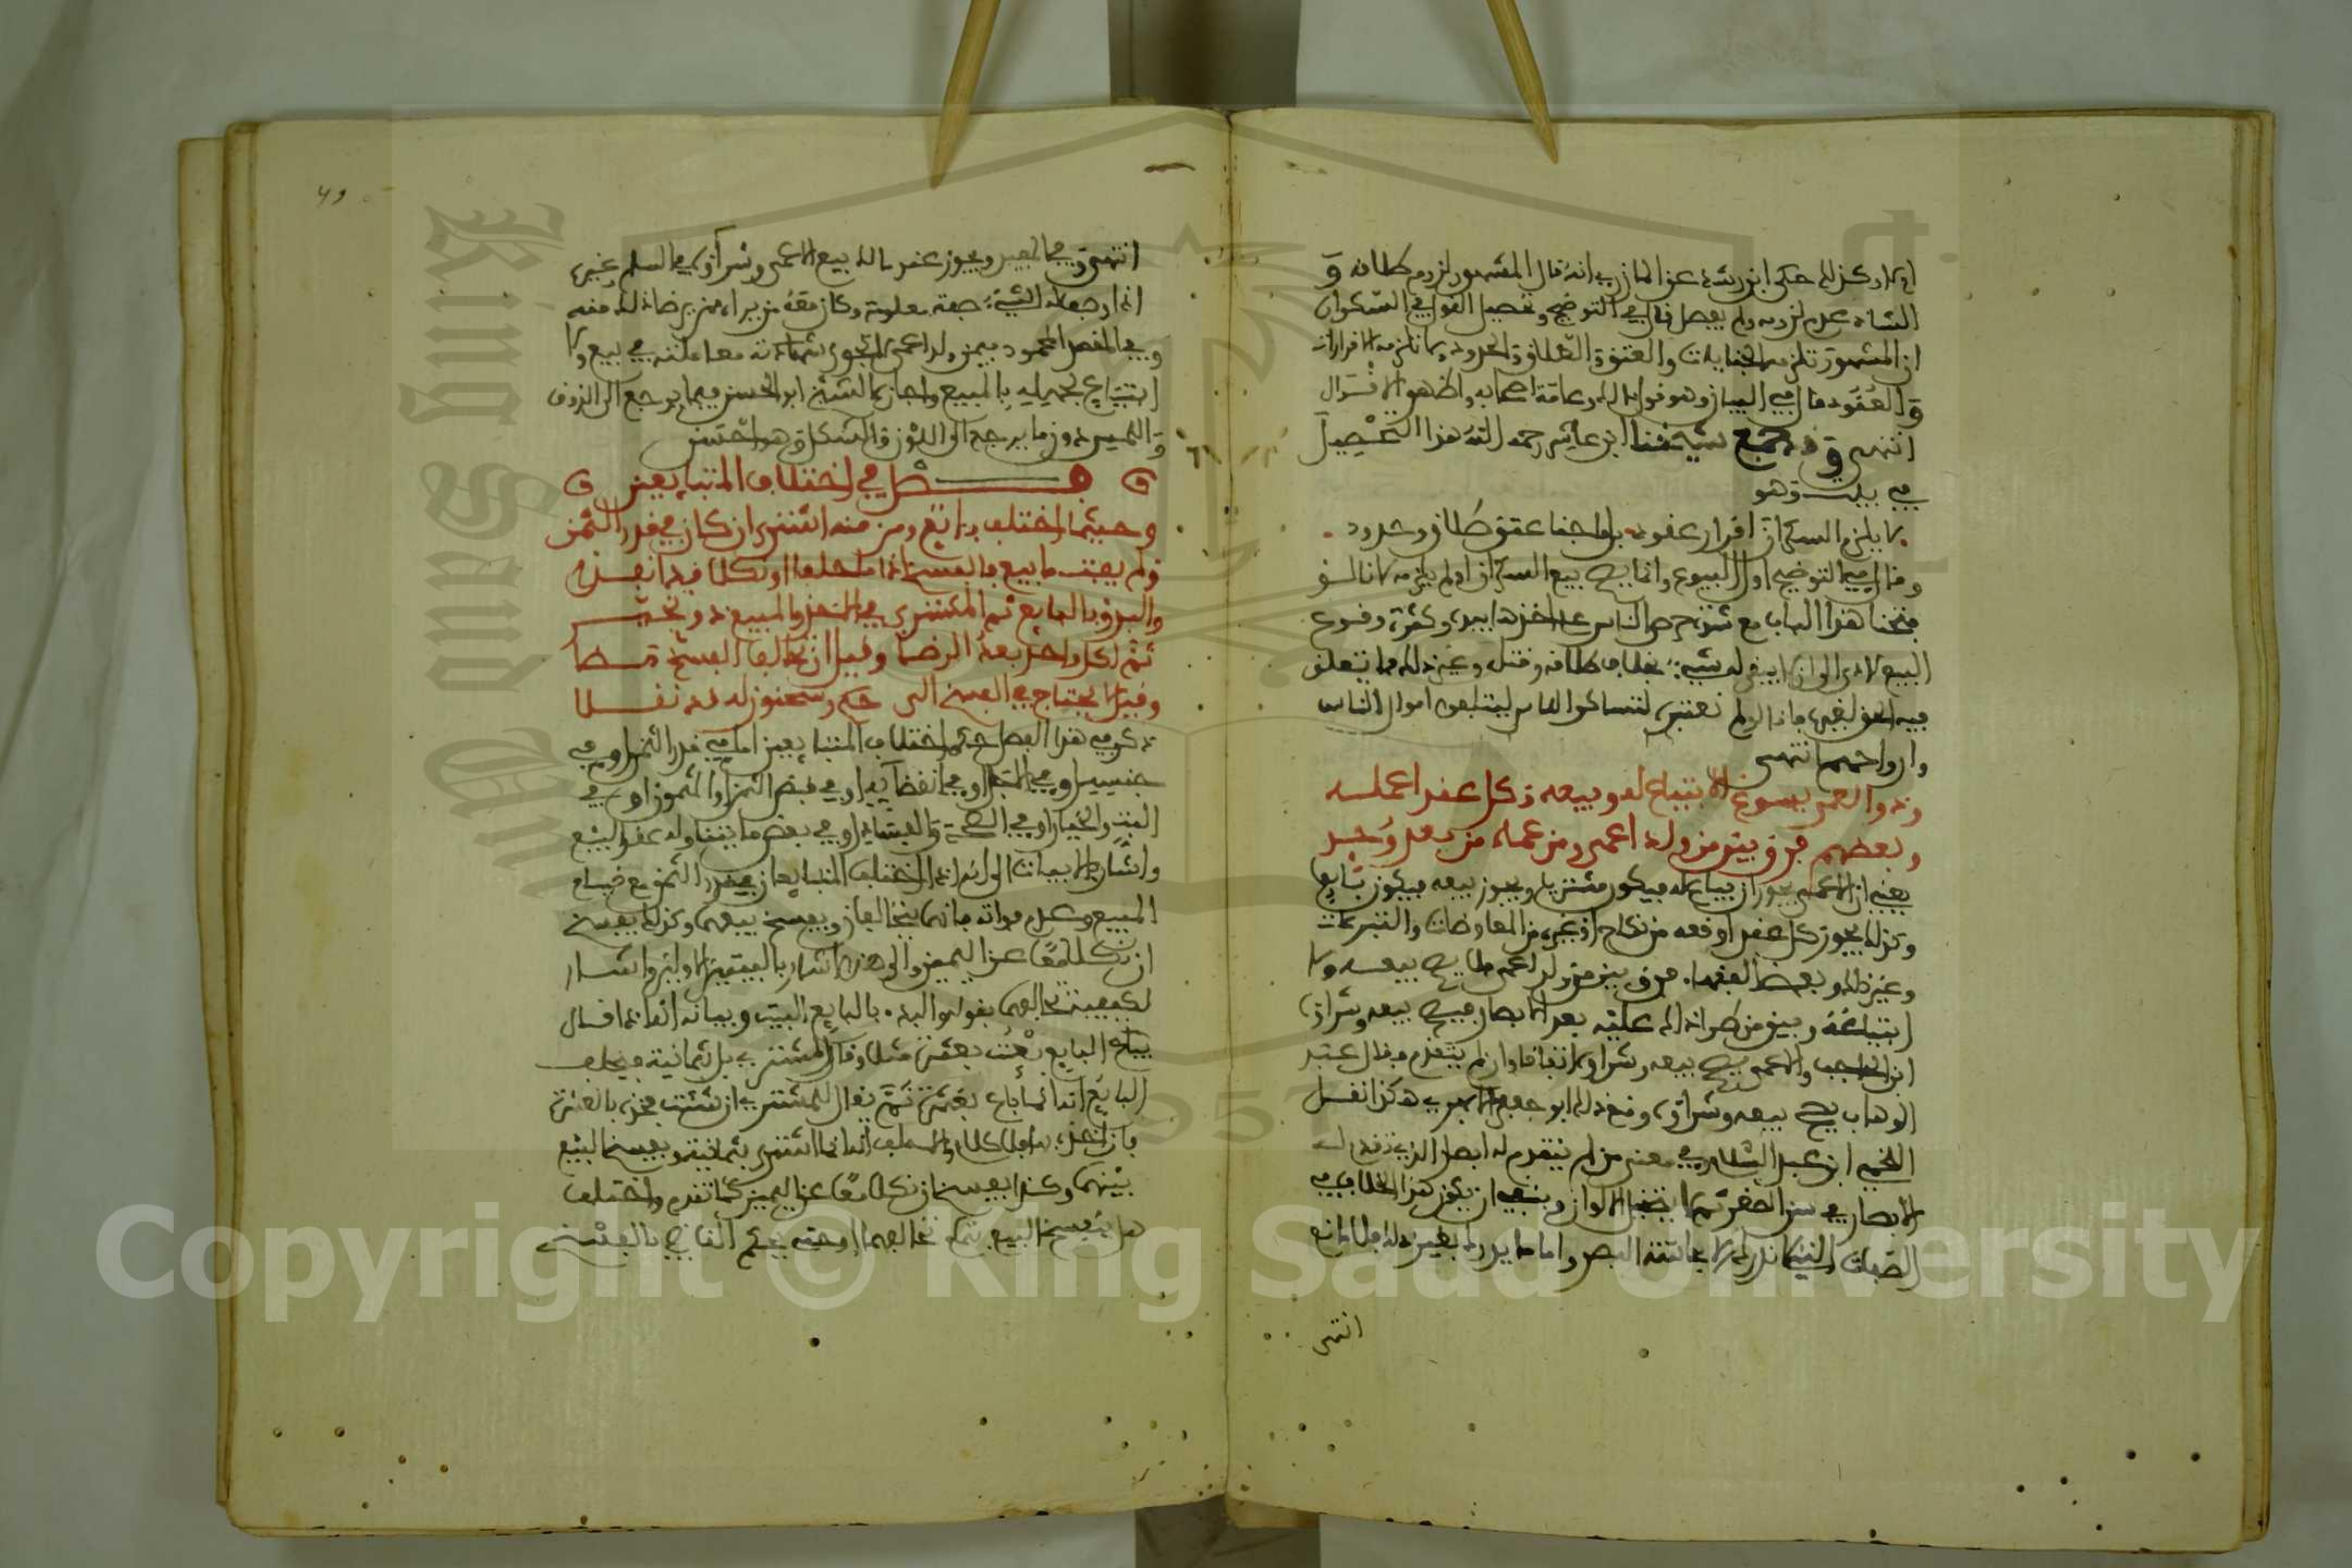 او لا وكذلك حكى ابن رشد عن المازري انه قال المشهور لزوم طلاقه و
الشاذ عدم لزومه ولم يفصل قال في التوضيح وتحصيل القول في السكران
ان المشهور تلزمه الجنايات والعتق والطلاق والحدود ولا تلزمه الاقرارات
والعقود قال في البيان وهو قول مالك وعامة اصحابه واظهر الاقوال
انتهى وقد جمع شيخنا ابن عاشر رحمه الله هذا التحصيل
في بيت وهو
لا يلزم السكران اقرار عقود بل ما جنا عتق طلاق وحدود
وقال في التوضيح اول البيوع وانما يصح بيع السكران او لم يلزمه لانا لو
فتحنا هذا الباب مع شدة حرص الناس على اخذ ما بيده وكثرة وقوع
البيع لادى الى ان لا يبقى له شيء بخلاف طلاقه وقتله وغير ذلك مما يتعلق
فيه الحق لغيره فانا لو لم نعتبره لتساكر الناس ليتلفوا اموال الناس
وارواحهم انتهى
وذو العمى يسوغ الابتياع له وبيعه وكل عقد اعمله
وبعضهم فرق بين من ولد اعمى ومن عماه من بعد وجد
يعني ان الاعمى يجوز ان يبتاع له فيكون مشتريا ويجوز بيعه فيكون بايعا
وكذلك يجوز كل عقد اوقعه من نكاح او غيره من المعاوضات والتبرعات
وغير ذلك وبعض الفقهاء فرق بين من ولد اعمى فلا يصح بيعه ولا
ابتياعه وبين من طرا ذلك عليه بعد الابصار فيصح بيعه وشراؤه
ابن الحاجب والاعمى يصح بيعه وشراؤه اتفاقا وان لم يتقدم فقال عبد
الوهاب يصح بيعه وشراؤه ومنع ذلك ابو جعفر الابهري هكذا نقل
اللخمي ابن عبد السلام وفي معنى من لم يتقدم له ابصار الذي تقدم له
الابصار في سن الصغر ثم لا يتخيل الالوان وينبغي ان يكون هذا الخلاف في
الصفات التي لا تدرك الا بحاسة البصر واما ما يدرك بغير ذلك فلا مانع
انتهى
49
انتهى وفي المفيد ويجوز عند مالك بيع الاعمى وشراؤه في السلم وغيره
اذا وصف له الشيء صفة معلومة وكان معه من يراه ممن يرضاه لذلك منه
وفي المقصد المحمود فيمن ولد اعمى لا تجوز شهادته معاملته في بيع ولا
ابتياع لجهله بالمبيع واجازها الشيخ ابو الحسن فيما يرجع الى الذوق
واللمس دون ما يرجع الى اللون والشكل وهو احسن
فصل في اختلاف المتبايعين
وحيثما اختلف بايع ومن منه اشترى ان كان في قدر الثمن
ولم يفت ما بيع فالفسخ اذا ما حلفا او نكلا قد انفذا
والبدء بالبايع ثم المشتري في الاخذ والمبيع ذو تخير
ثم لكل واحد بعد الرضا وقيل ان تحالفا الفسخ مضا
وقيل لا يحتاج في الفسخ الى حكم وسحنون له قد نقلا
ذكر في هذا الفصل حكم اختلاف المتبايعين اما في قدر الثمن او في
جنسه او في الاجل او في انقضائه او في قبض الثمن او المثمون او في
البت والخيار او في الصحة والفساد او في بعض ما يتناوله عقد البيع
واشار بالابيات الى انه اذا اختلف المتبايعان في قدر الثمن مع قيام
المبيع وعدم فواته فانهما يتحالفان ويفسخ بيعهما وكذلك يفسخ
ان نكلا معا عن اليمين والى هذا اشار بالبيتين الاولين واشار
لكيفية تحالفهما بقوله والبدء بالبايع البيت وبيانه انه اذا قال
البايع بعت بعشرة مثلا وقال المشتري بل بثمانية فيحلف
البايع انه ما باع بعشرة ثم يقال للمشتري ان شئت فخذه بالعشرة
فان اخذه فلا كلام والا حلف انه ما اشترى بثمانية ويفسخ البيع
بينهما وكذا يفسخ ان نكلا معا عن اليمين كما تقدم واختلف
هل يفسخ البيع بتمام تحالفهما او حتى يحكم القاضي بالفسخ